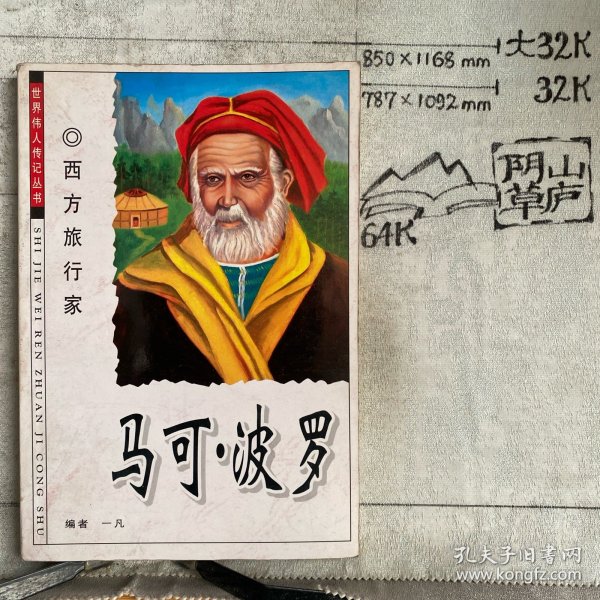 世界伟人传记丛书
SHI JIE WEI REN ZHUAN JI CONG SHU
◎西方旅行家
马可·波罗
编者 一凡
850×1168 mm 大32K
787×1092 mm 32K
64K
阴山
草庐
孔夫子旧书网
www.kongfz.com